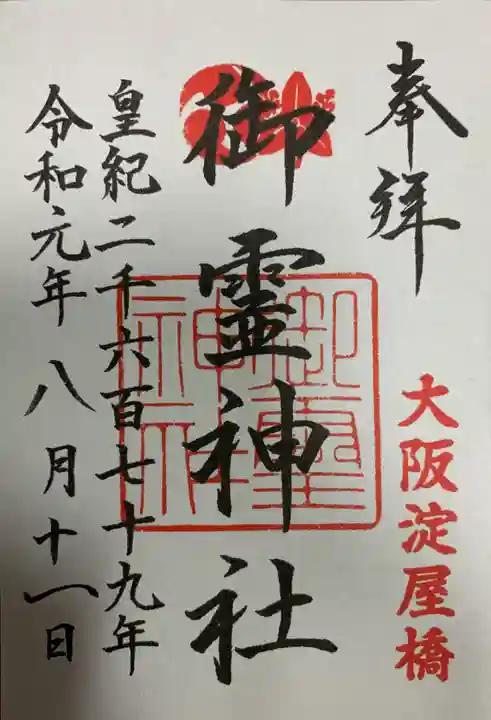 奉拝
大阪淀屋橋
御霊神社
御霊神社
皇紀二千六百七十九年
令和元年 八月十一日